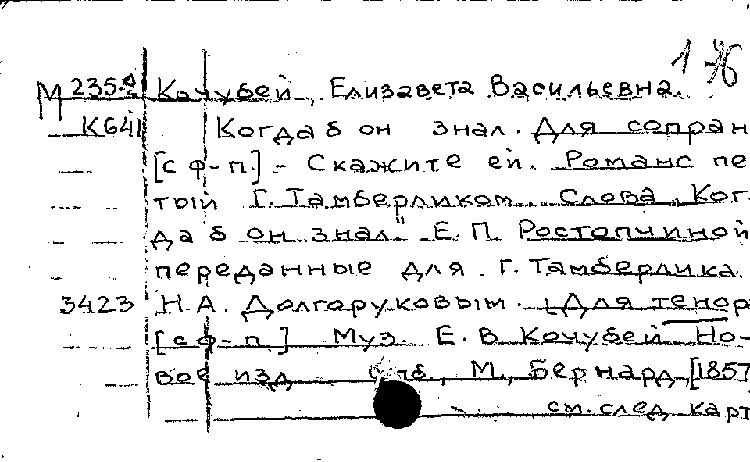 1-76
М 235-2 Кочубей, Елизавета Васильевна.
К641 Когда б он знал. Для сопран
[с ф-п.] - Скажите ей. Романс пе
тый Г. Тамберликом. Слова "Ког
да б он знал" Е. П. Ростопчиной
переданные для Г. Тамберлика
3423 Н. А. Долгоруковым. [Для тенор
[с ф-п.] Муз. Е. В. Кочубей Но-
вое изд Спб., М., Бернард, [1857
см. след карт